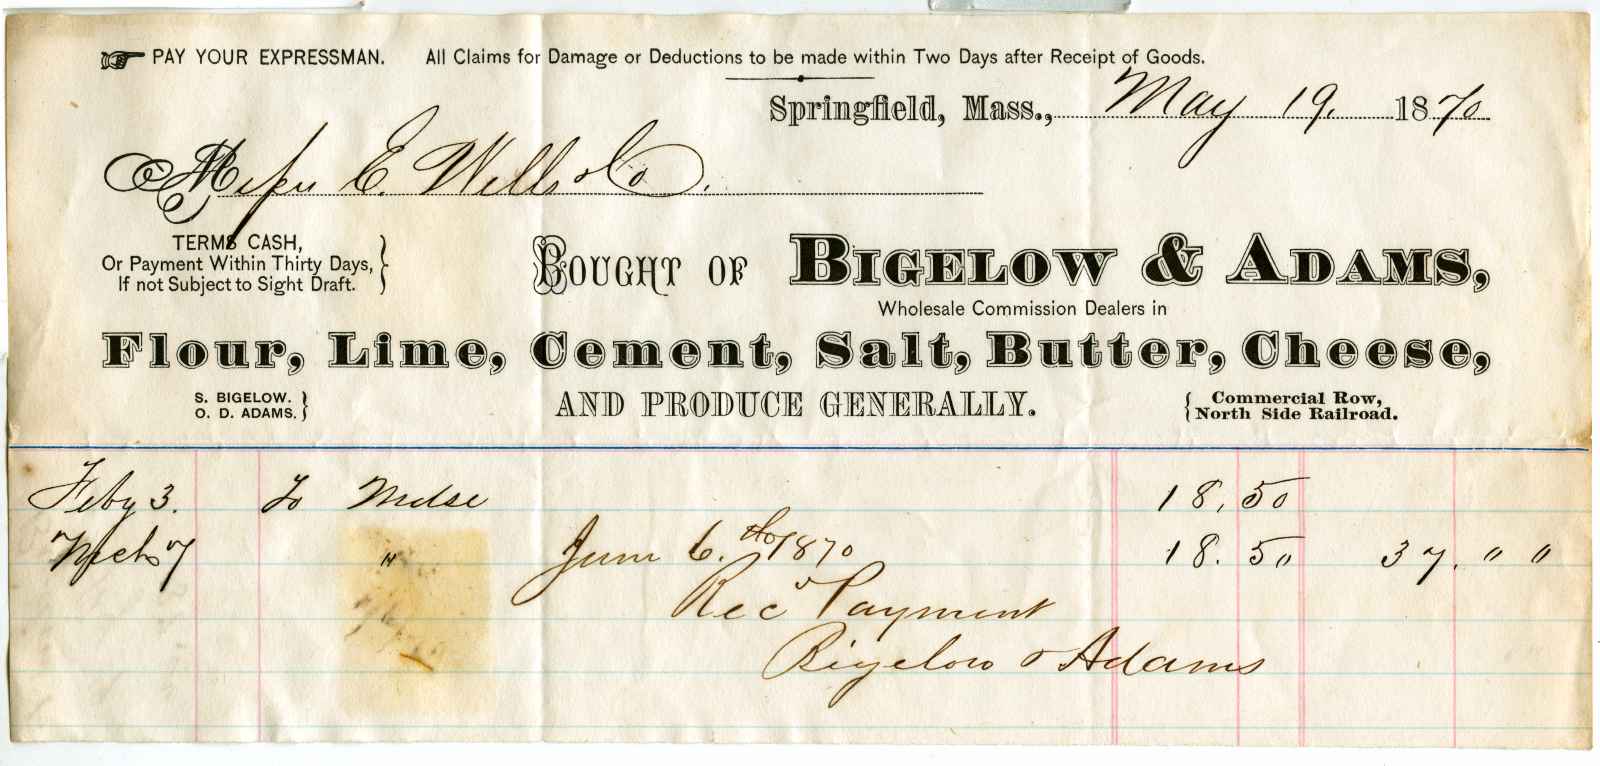 PAY YOUR EXPRESSMAN. All Claims for Damage or Deductions to be made within Two Days after Receipt of Goods.
Springfield, Mass., May 19, 1870
Messrs E. Wells & Co.
TERMS CASH,
Or Payment Within Thirty Days,
If not Subject to Sight Draft.
BOUGHT OF BIGELOW & ADAMS,
Wholesale Commission Dealers in
Flour, Lime, Cement, Salt, Butter, Cheese,
S. BIGELOW.
O. D. ADAMS.
AND PRODUCE GENERALLY.
Commercial Row,
North Side Railroad.
Feby 3. To Mdse 18.50
Mch 7 " 18.50 37. " "
June 6th 1870
Recd Payment
Bigelow & Adams